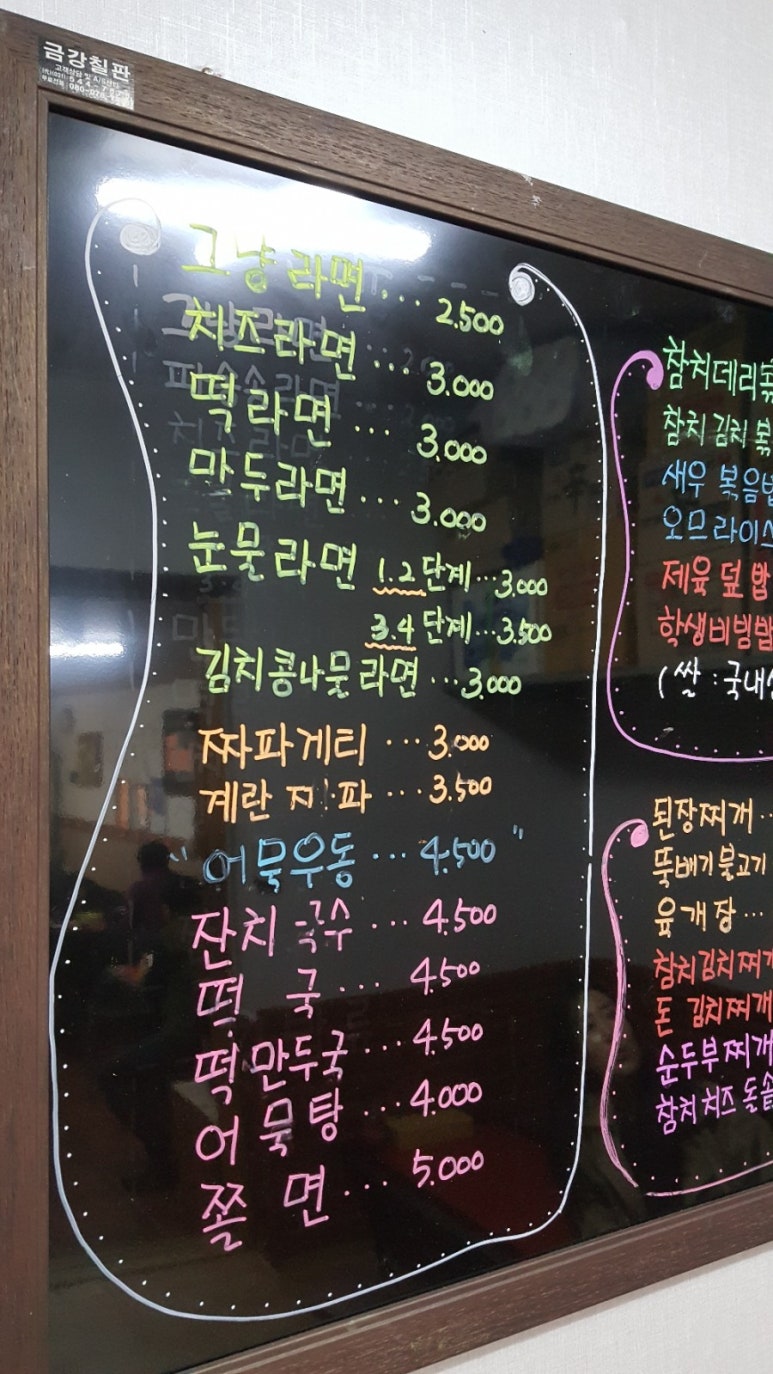 금강칠판
고객상담 및 A/S센타
그냥라면 ... 2.500
치즈라면 ... 3.000
떡라면 ... 3.000
만두라면 ... 3.000
눈물라면 1.2단계 ... 3.000
3.4단계 ... 3.500
김치콩나물라면 ... 3.000
짜파게티 ... 3.000
계란 파 ... 3.500
"어묵우동 ... 4.500"
잔치국수 ... 4.500
떡국 ... 4.500
떡만두국 ... 4.500
어묵탕 ... 4.000
쫄면 ... 5.000
참치데리볶
참치김치볶
새우볶음밥
오므라이스
제육덮밥
학생비빔밥
(쌀:국내산
된장찌개 ..
뚝배기불고기
육개장 ...
참치김치찌개
돈김치찌개
순두부찌개
참치치즈돌솥